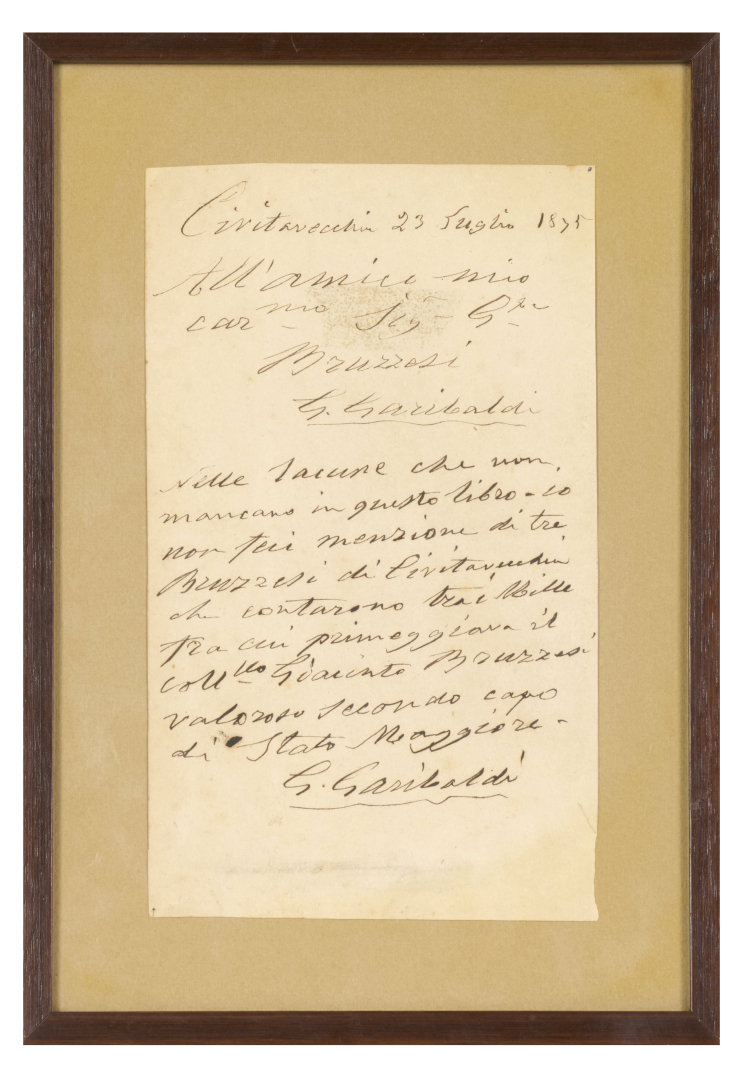 Civitavecchia 23 Luglio 1875
All'amico mio
car.mo Sig. G.le
Bruzzesi
G. Garibaldi
Nelle lacune che non
mancano in questo libro - io
non feci menzione di tre
Bruzzesi di Civitavecchia
che contarono trai Mille
tra cui primeggiava il
coll.llo Giacinto Bruzzesi
valoroso secondo capo
di Stato Maggiore -
G. Garibaldi